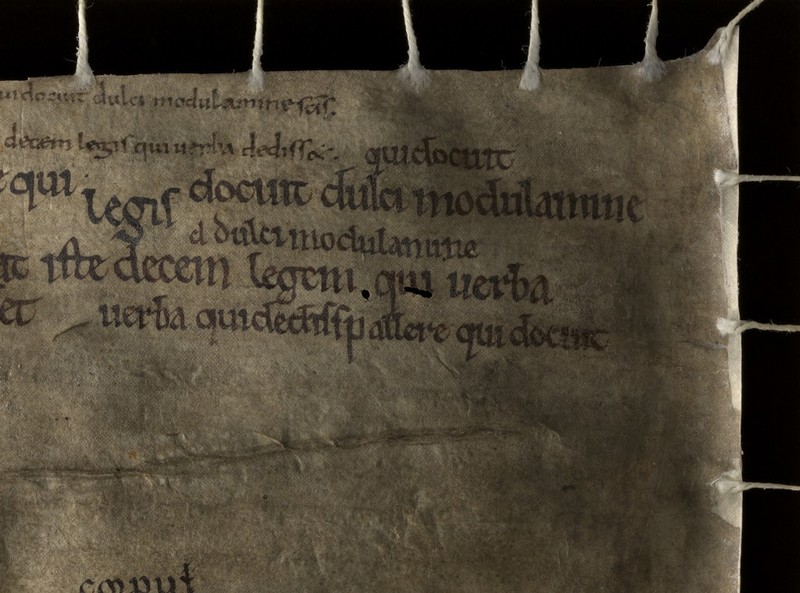 qui docuit dulci modulamine scis.
decem legis qui uerba dedisse. qui docuit
qui legis docuit dulci modulamine
d dulci modulamine
iste decem legem. qui uerba
et uerba qui psallere qui docuit
corpus